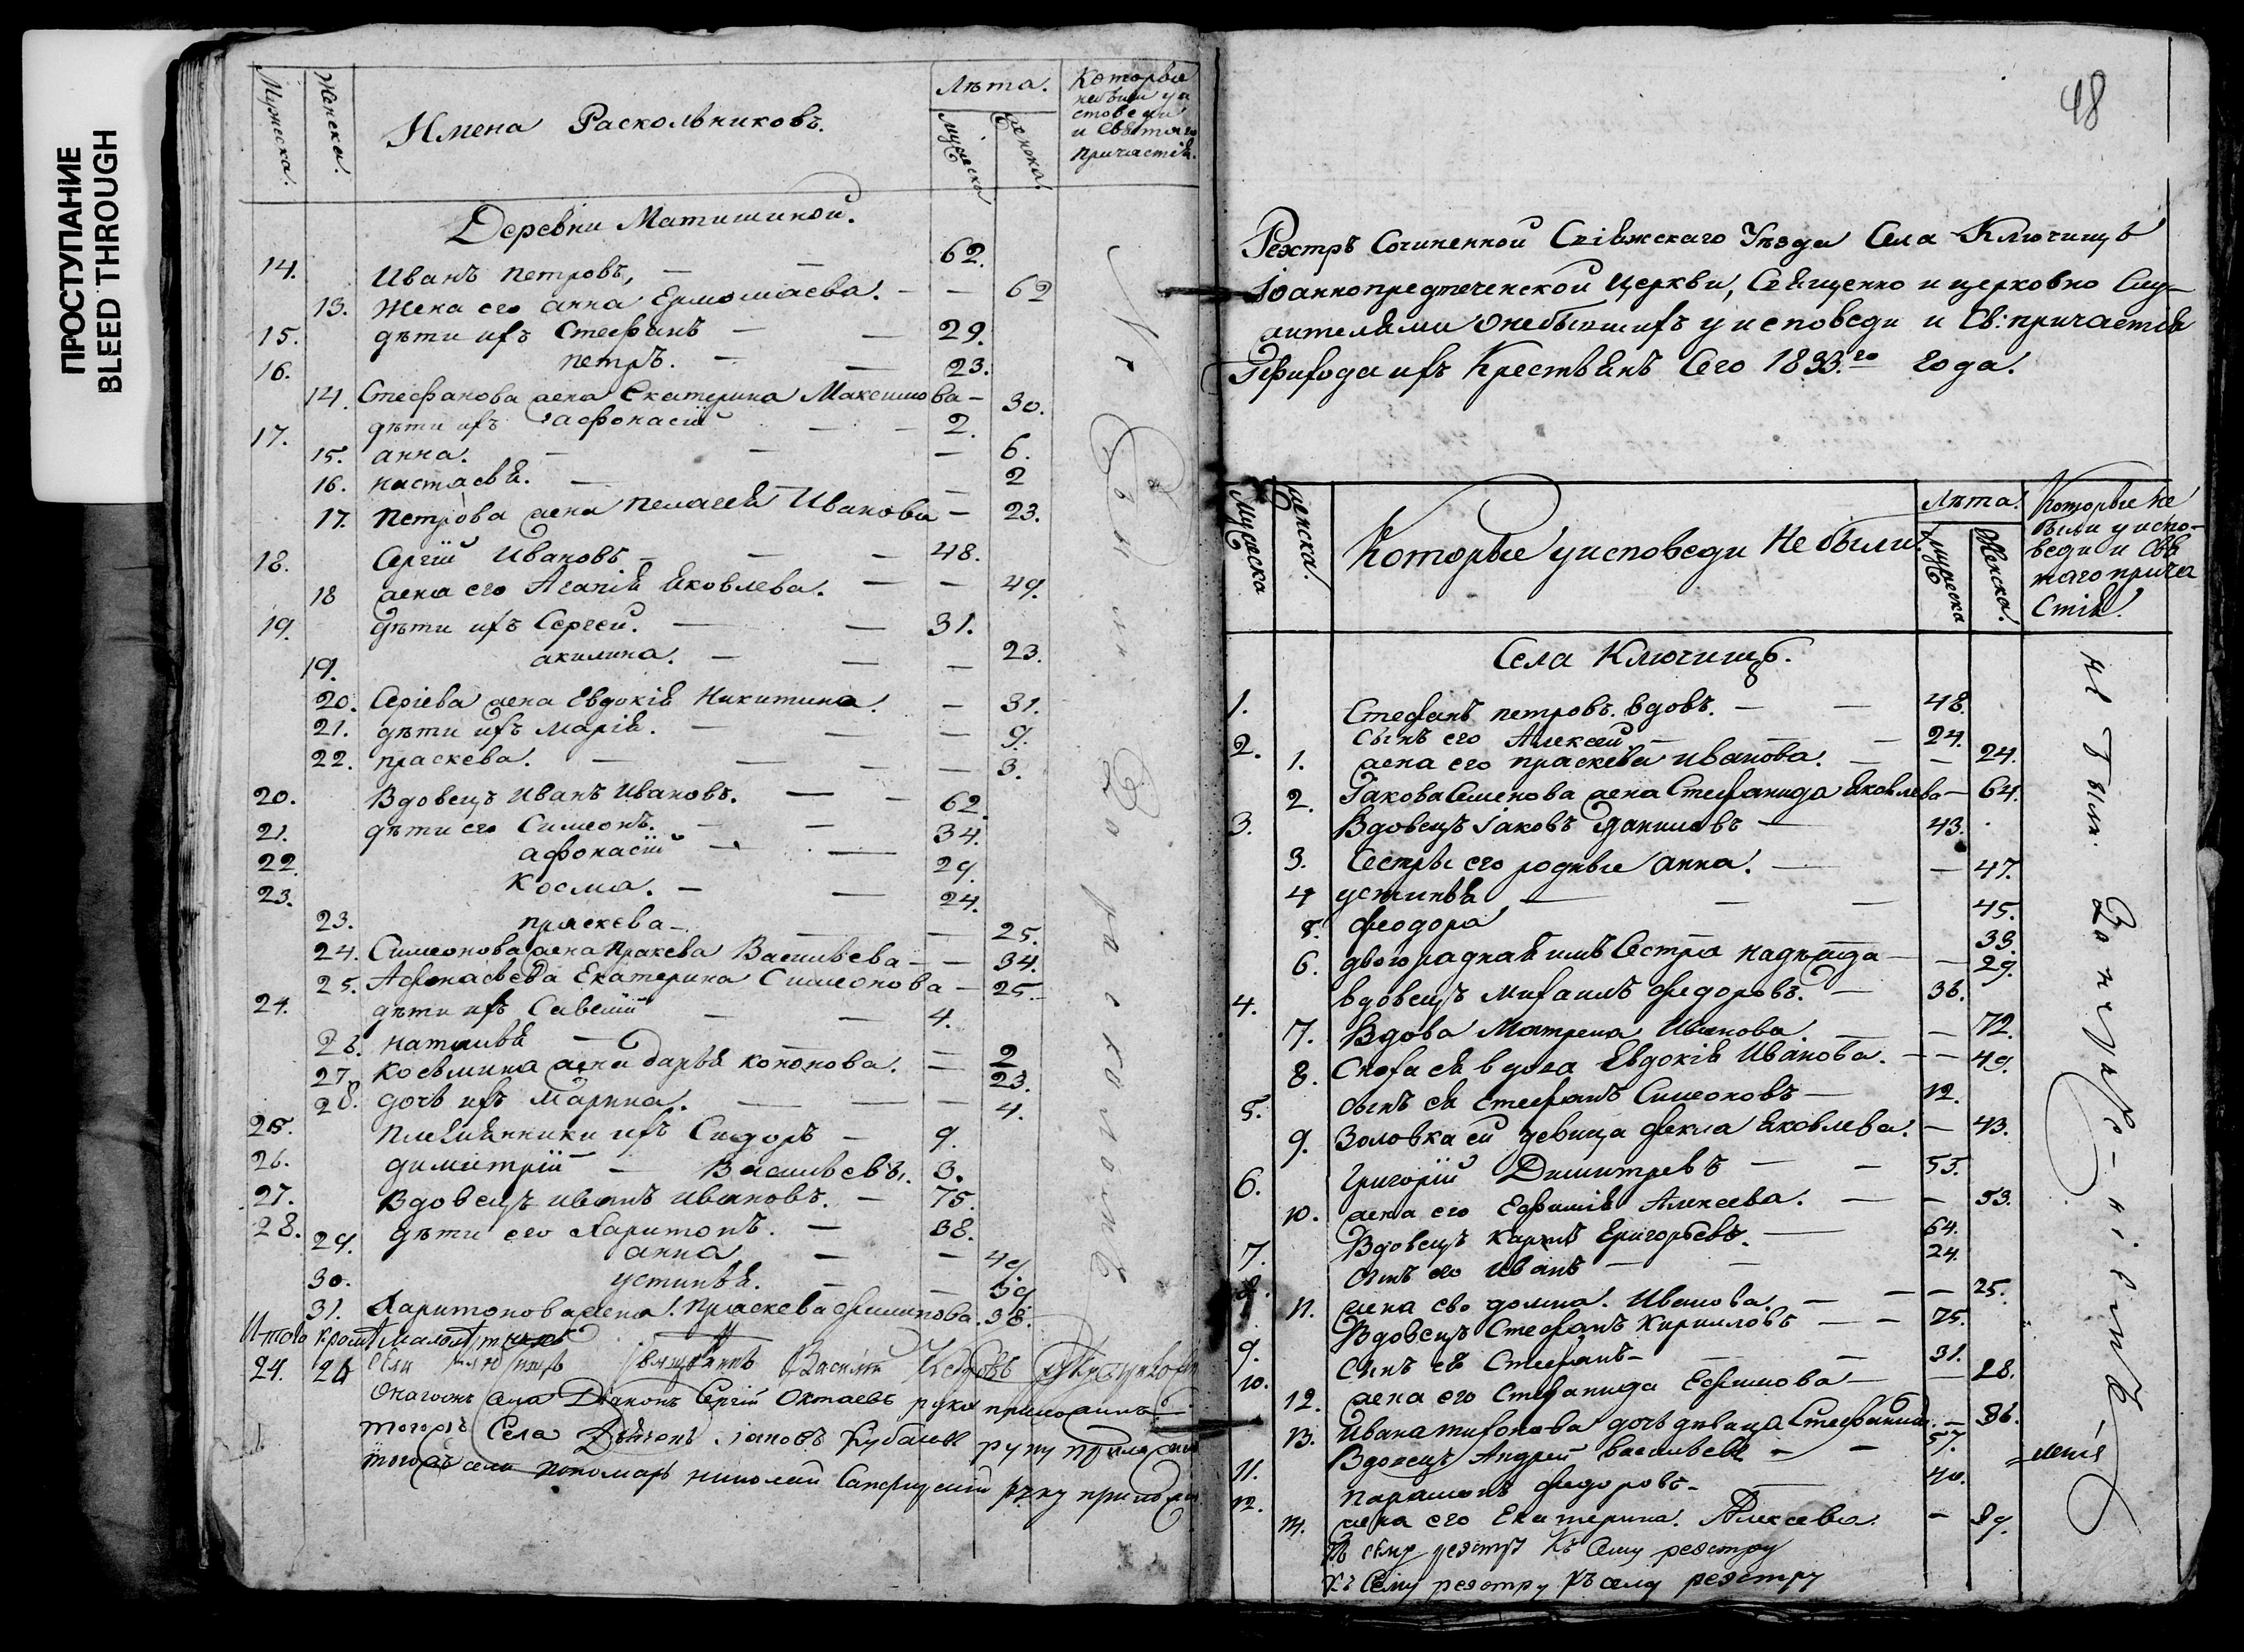 ПРОСТУПАНИЕ
BLEED THROUGH
Мужеска.
Женска.
Имена Раскольниковъ.
Лѣта.
Мужеска
Женска
Которые
небыли у и
споведи
и Святаго
Причастія.
Деревни Матишиной.
14. Иванъ Петровъ, — — 62.
13. Жена его анна Ермолаева. — — 62
15. дѣти ихъ Стефанъ — — 29.
16. петръ. — — 23.
14. Стефанова жена Екатерина Максимова — 30.
17. дѣти ихъ афонасій — — 2.
15. анна. — — — 6.
16. настасья. — — 2
17. Петрова жена Пелагея Иванова — 23.
18. Сергій Ивановъ — — — 48.
18 жена его Агапія Яковлева. — — 49.
19. дѣти ихъ Сергей. — — 31.
19. акилина. — — — 23.
20. Сергіева жена Евдокія Никитина. — 31.
21. дѣти ихъ Марія. — — — 9.
22. праскева. — — — — 3.
20. Вдовецъ Иванъ Ивановъ. — — 62.
21. дѣти его Симеонъ. — — 34.
22. афонасій — — 29.
23. Косма. — — 24.
23. праскева — — — 25.
24. Симеонова жена Пракева Васильева — — 34.
25. Афонасьева Екатерина Симеонова — 25.
24. дѣти ихъ Савелій — — 4.
26. наталья — — — 2
27. Косьмина жена дарья кононова. — 23.
28. дочь ихъ Марина. — — — 4.
25. Племянники ихъ Сидоръ — 9.
26. димитрій — Васильевы. 3.
27. Вдовецъ иванъ ивановъ. — 75.
28. дѣти его Харитонъ. — 38.
29. анна — — 49
30. устинья. — — 39
31. Харитонова жена. Праскева филипова. 38.
Итого кромѣ малолѣтныхъ
24. 24 Села Ключищъ Священникъ Василій
Онагожъ села Діаконъ Сергій Октаевъ руку приложилъ.
тогожъ Села Дьячокъ іаковъ руку приложилъ
тогожъ села пономарь николай руку приложилъ
Не были За расколомъ
48
Реэстръ Сочиненной Свіяжскаго Уѣзда Села Ключищъ
Іоаннопредтеченской Церкви, Священно и церковно Слу-
жителями Онебывшихъ у исповеди и Св: причастія
Прихода ихъ Крестьянъ Сего 1833.го года.
Мужеска
женска.
Которые у исповеди Не были.
Лѣта.
Мужеска
Женска.
Которые не
были у испо-
веди и Свя
таго прича
стія.
Села Ключищъ.
1. Стефанъ петровъ. вдовъ. — — 48.
2. Сынъ его Алексей — — — 24.
1. жена его праскева иванова. — — 24.
2. Іакова Семенова жена Стефанида Яковлева — 64.
3. Вдовецъ Іаковъ Даниловъ — 43.
3. Сестры его родныя анна. — — 47.
4 устинья — — — 45.
5. феодора 33.
6. двоюрадная имъ Сестра надежда — — 29.
4. вдовецъ Михаилъ федоровъ. — 36.
7. Вдова Матрена Иванова — — 72.
8. Сноха ея вдова Евдокія Иванова. — — 49.
5. сынъ ея Стефанъ Симеоновъ — 12.
9. Золовка ей девица фекла Яковлева. — 43.
6. Григорій Димитревъ — — 53.
10. жена его Евфимія Алексеева. — — 53.
7. Вдовецъ Карпъ Григорьевъ. — 64.
8. Сынъ его Иванъ — — 24.
11. жена его домна. Иванова. — — — 25.
9. Вдовецъ Стефанъ Кириловъ — — 75.
10. Сынъ ево Стефанъ — — — 31.
12. жена его Стефанида Ефимова — — 28.
13. Ивана тихонова дочь дѣвица Стефанида. — 36.
11. Вдовецъ Андрей васильевъ — — 57.
12. Парамонъ федоровъ — 40.
14. жена его Екатерина. Алексеева. — 39.
Къ сему реэстру Къ Сему реэстру
Къ Сему реэстру Къ сему реэстру
Не были За нерадѣніемъ